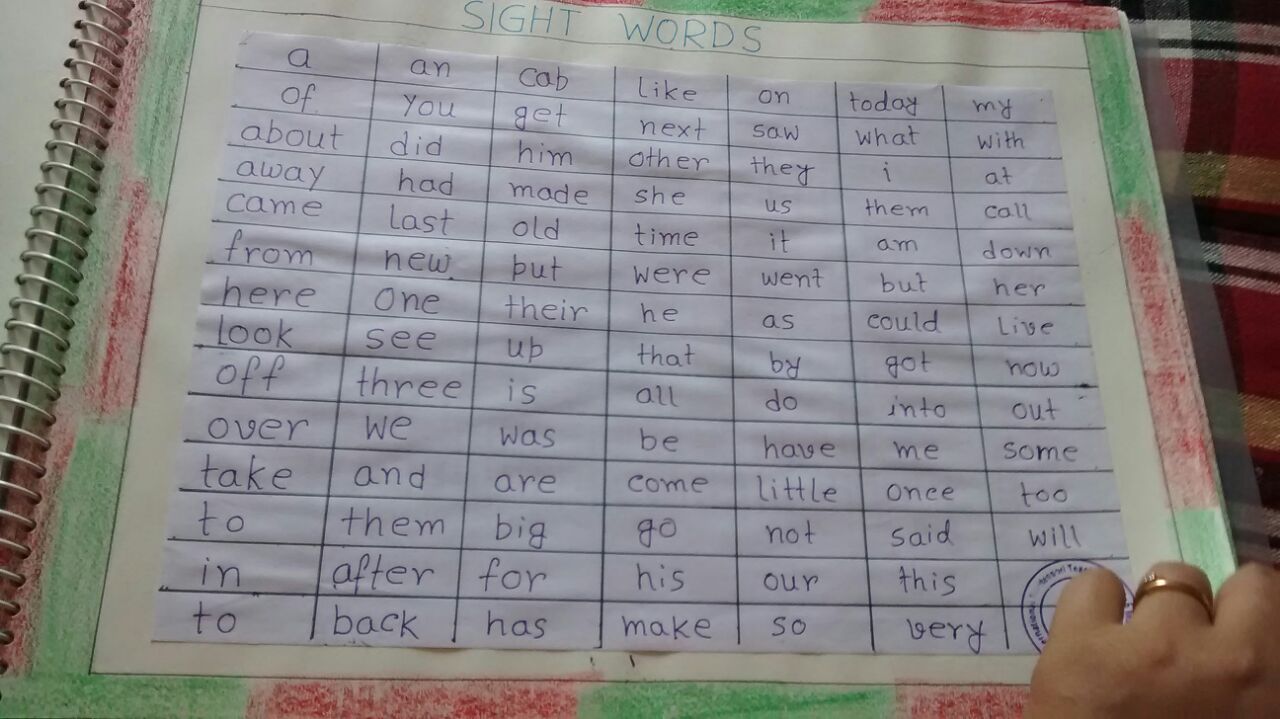 SIGHT WORDS
a an cab like on today my
of you get next saw what with
about did him other they i at
away had made she us them call
came last old time it am down
from new but were went but her
here one their he as could live
look see up that by got now
off three is all do into out
over we was be have me some
take and are come little once too
to them big go not said will
in after for his our this
to back has make so very